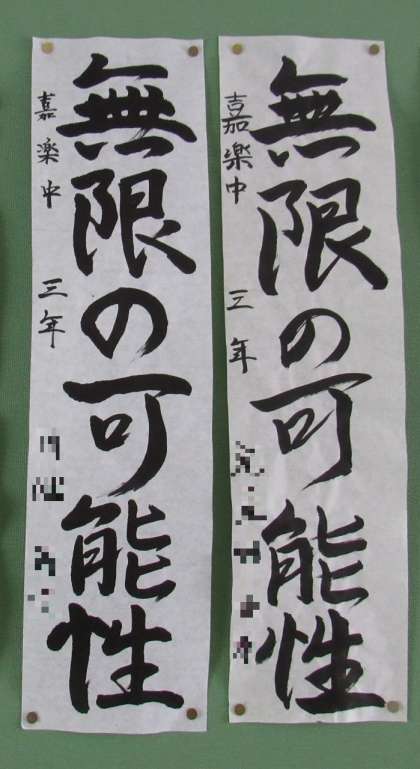 無限の可能性
嘉楽中 三年
無限の可能性
嘉楽中 三年